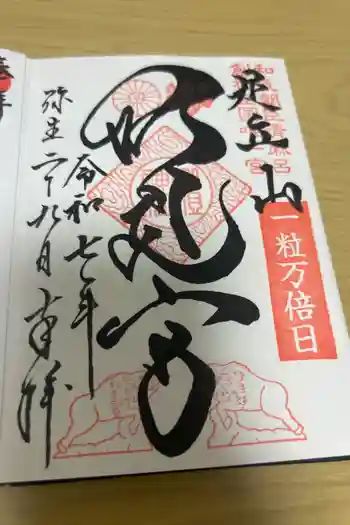 足立山
一粒万倍日
妙見宮
令和七年
弥生二十九日
奉拝